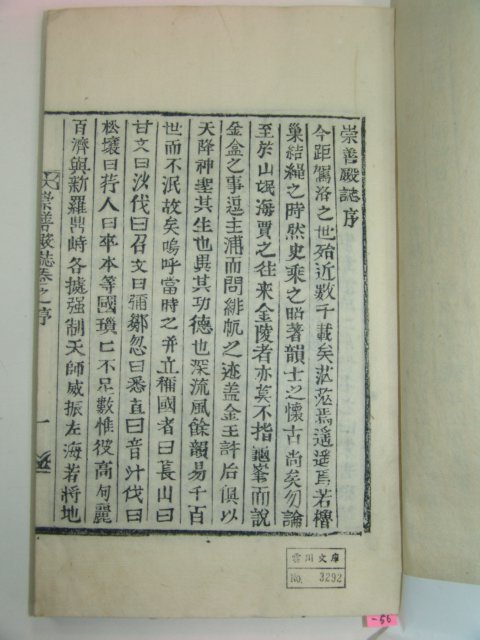 崇善殿誌序
今距駕洛之世殆近數千載矣茫茫焉遥遥焉若櫓
巢結繩之時然史乘之昭著韻士之懷古尚矣勿論
至於山氓海賈之往來金陵者亦莫不指龜峯而說
金盒之事逗主浦而問緋帆之迹盖金王許后俱以
天降神聖其生也異其功德也深流風餘韻易千百
世而不泯故矣嗚呼當時之幷立稱國者曰萇山曰
甘文曰沙伐曰召文曰彌鄒忽曰悉直曰音汁伐曰
松壤曰荇人曰卒本等國瓆㔾不足數惟彼高句麗
百濟與新羅鼎峙各據强制天師威振左海若將地
崇善殿誌卷之序
一
雲川文庫
No. 3292
-56